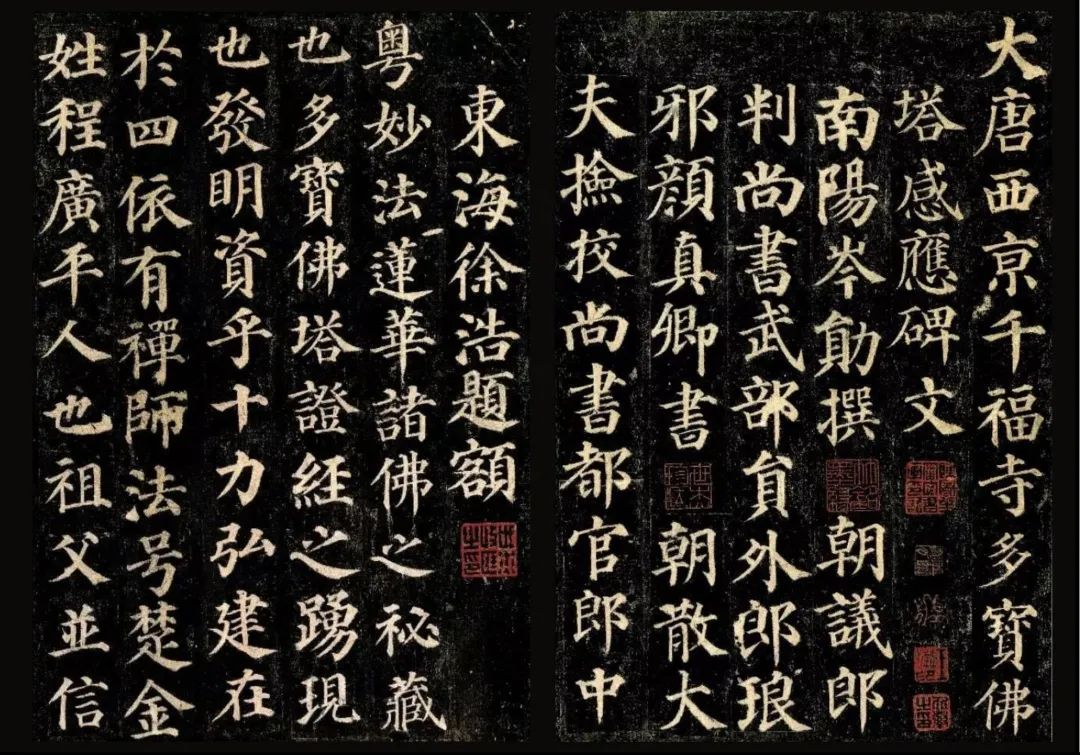 大唐西京千福寺多寶佛
塔感應碑文
南陽岑勛撰 朝議郎
判尚書武部員外郎琅
邪顏真卿書 朝散大
夫撿挍尚書都官郎中
東海徐浩題額
粵妙法蓮華諸佛之祕藏
也多寶佛塔證経之踴現
也發明資乎十力弘建在
於四依有禪師法号楚金
姓程廣平人也祖父並信